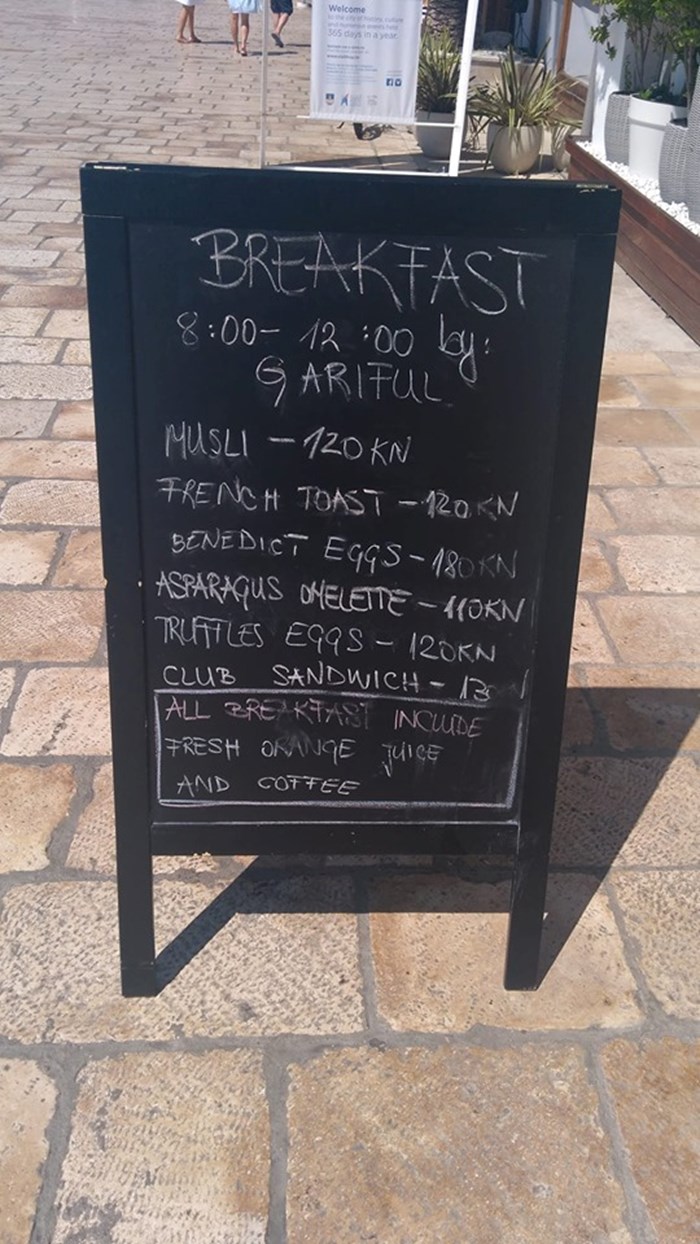 Welcome
365 days in a year.
BREAKFAST
8:00- 12:00 by:
GARIFUL
MUSLI - 120KN
FRENCH TOAST - 120KN
BENEDICT EGGS - 180KN
ASPARAGUS OMELETTE - 110KN
TRUFFLES EGGS - 120KN
CLUB SANDWICH -
ALL BREAKFAST INCLUDE
FRESH ORANGE JUICE
AND COFFEE